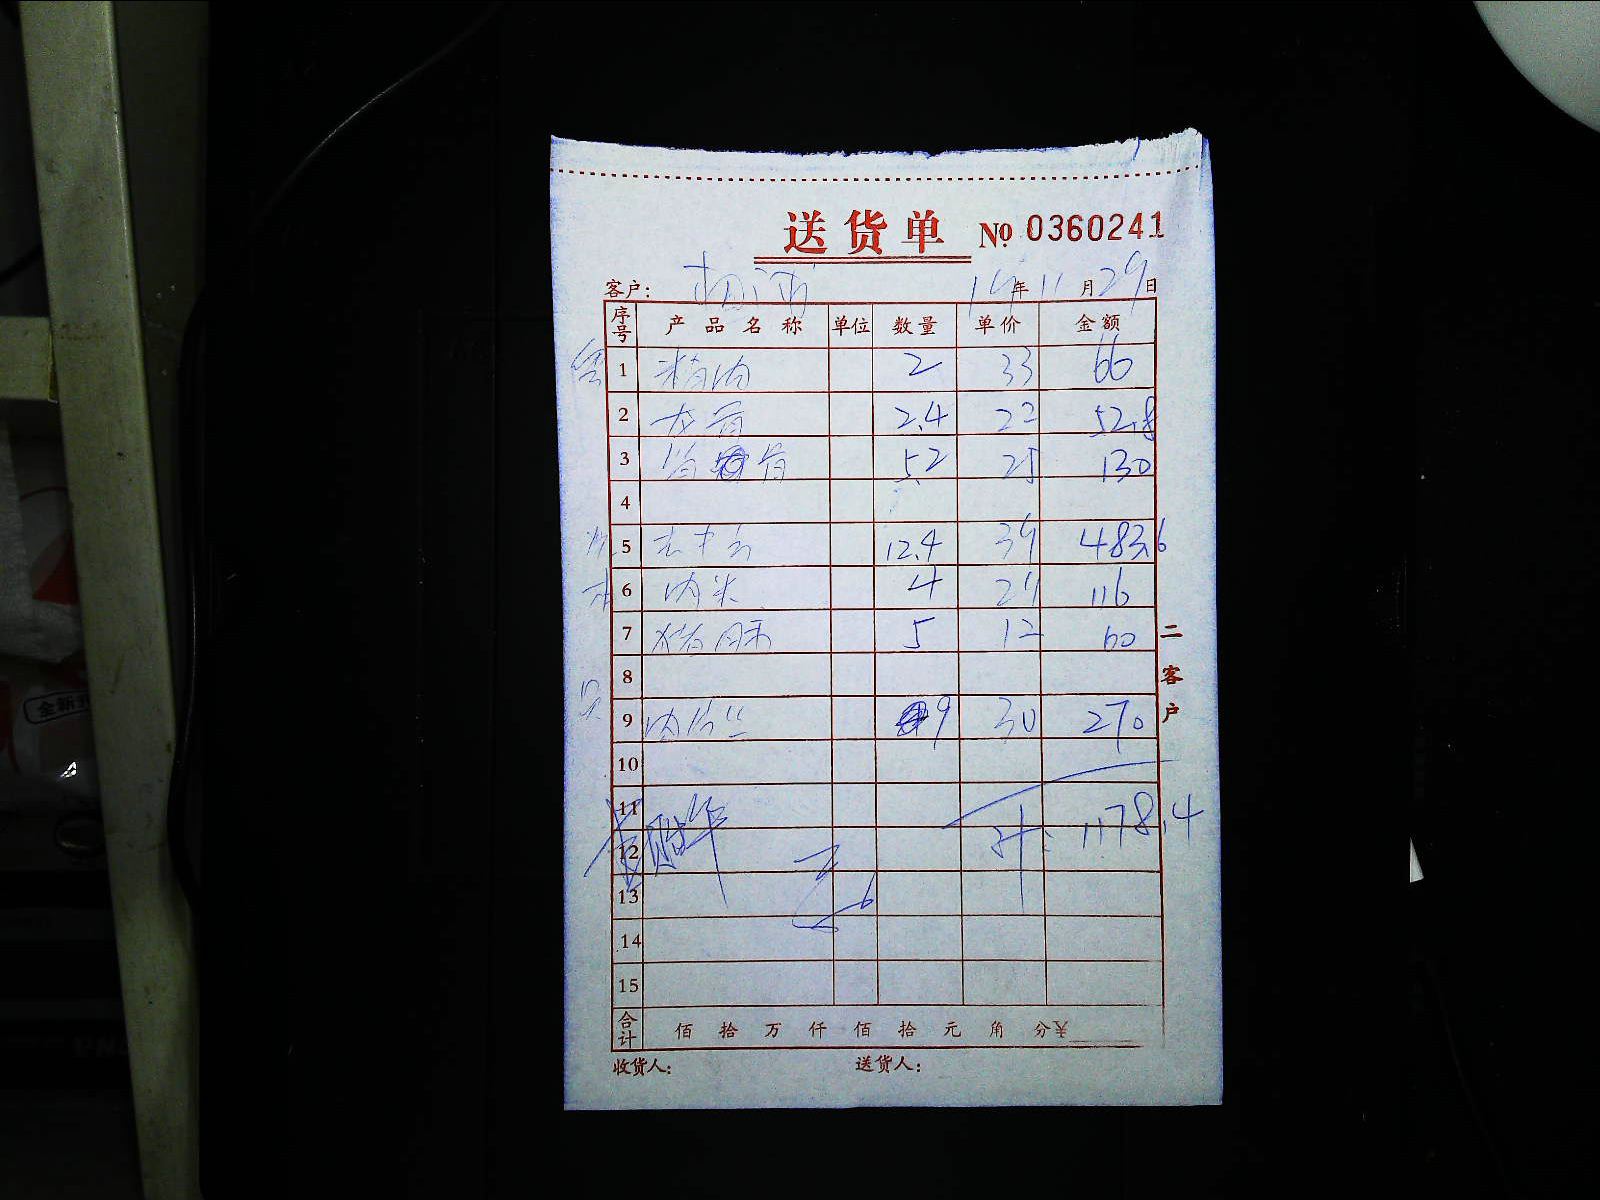 送货单 № 0360241
客户: 19年11月29日
序号 产品名称 单位 数量 单价 金额
1 精肉 2 33 66
2 龙骨 2.4 22 52.8
3 5.2 25 130
4
5 12.4 39 483.6
6 肉米 4 29 116
7 5 12 60
8
9 肉丝 9 30 270
10
11 计: 1178.4
12
13
14
15
合计 佰 拾 万 仟 佰 拾 元 角 分¥
收货人: 送货人:
二客户
全新